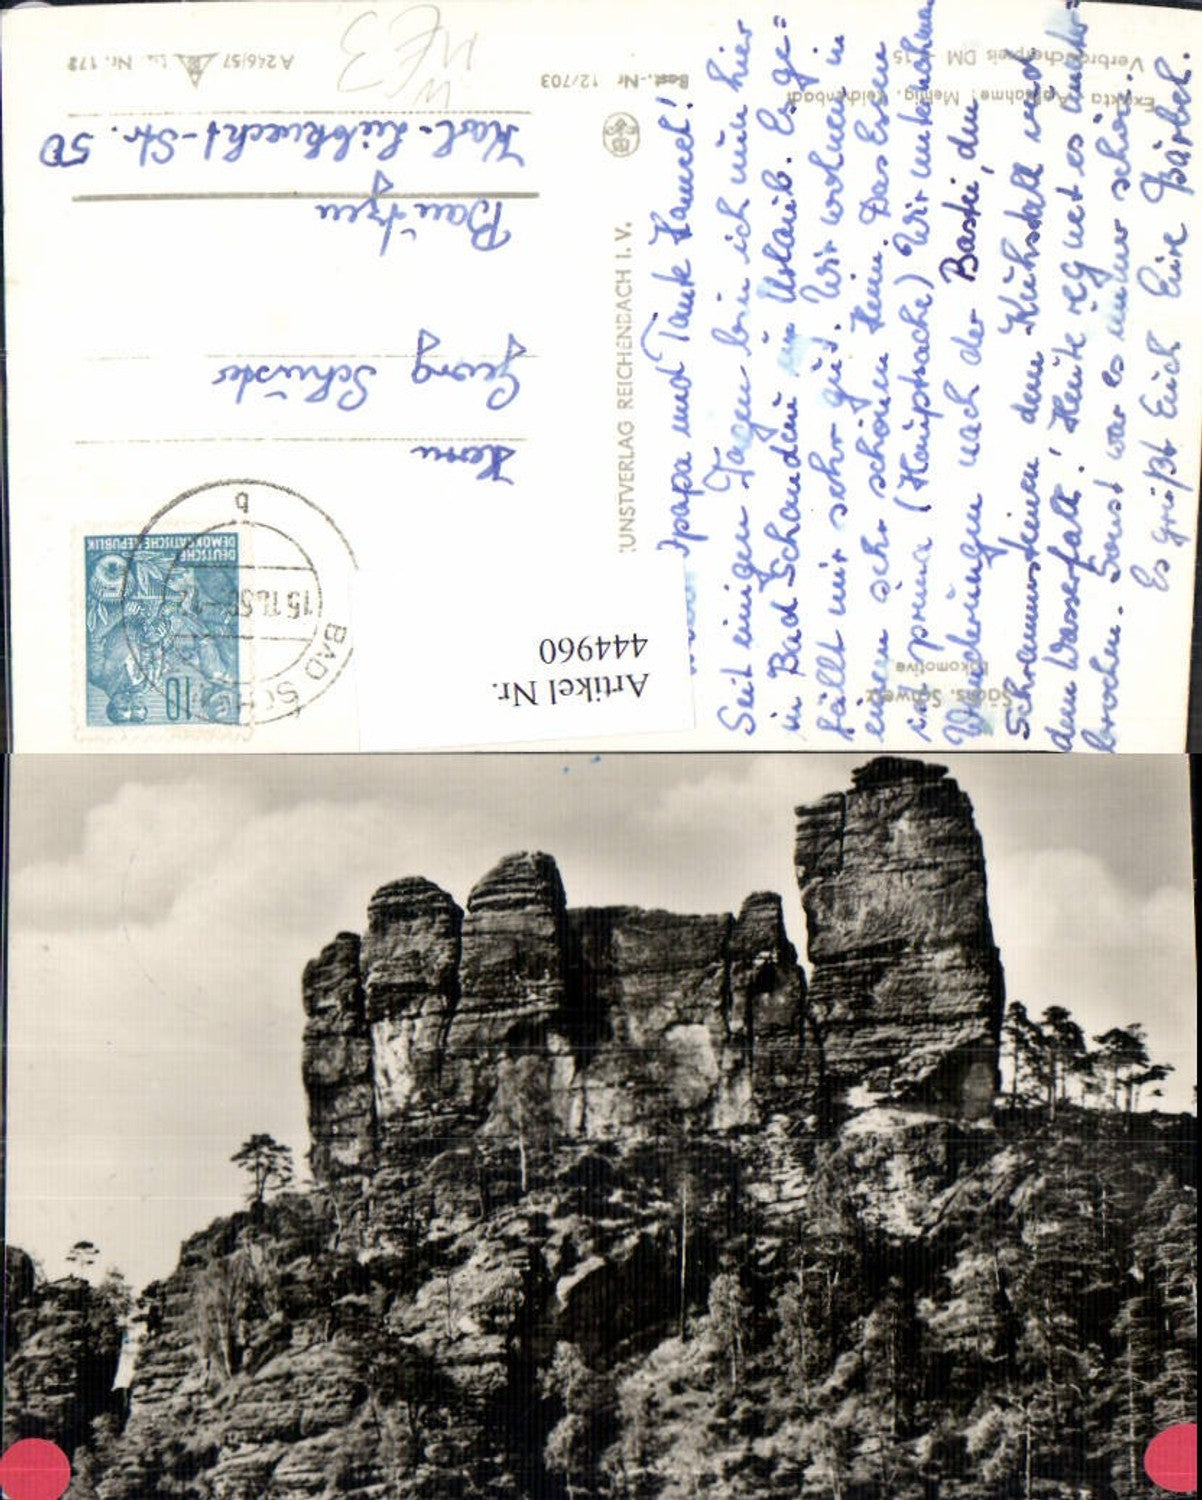 Papa und Tante Hansel!
Seit einigen Tagen bin ich nun hier
in Bad Schandau in Urlaub. Es ge=
fällt mir sehr gut. Wir wohnen in
einem sehr schönen Heim. Das Essen
ist prima (Hauptsache) Wir unternehmen
Wanderungen nach der Bastei, den
Schrammsteinen dem Kuhstall und
dem Wasserfall. Heute regnet es ununter=
brochen. Sonst war es immer schön.
Es grüßt Euch Eure Bärbel.
Sächs. Schweiz
Lokomotive
Exakta Aufnahme: Meinig, Reichenbach
Verbraucherpreis DM 0,15
KUNSTVERLAG REICHENBACH I. V.
Best.-Nr 12/703
A 246/57 Nr. 172
DEUTSCHE
DEMOKRATISCHE REPUBLIK
10
BAD SCH
b
Herrn
Georg Schuster
Bautzen
Karl-Liebknecht-Str. 50
Artikel Nr.
444960